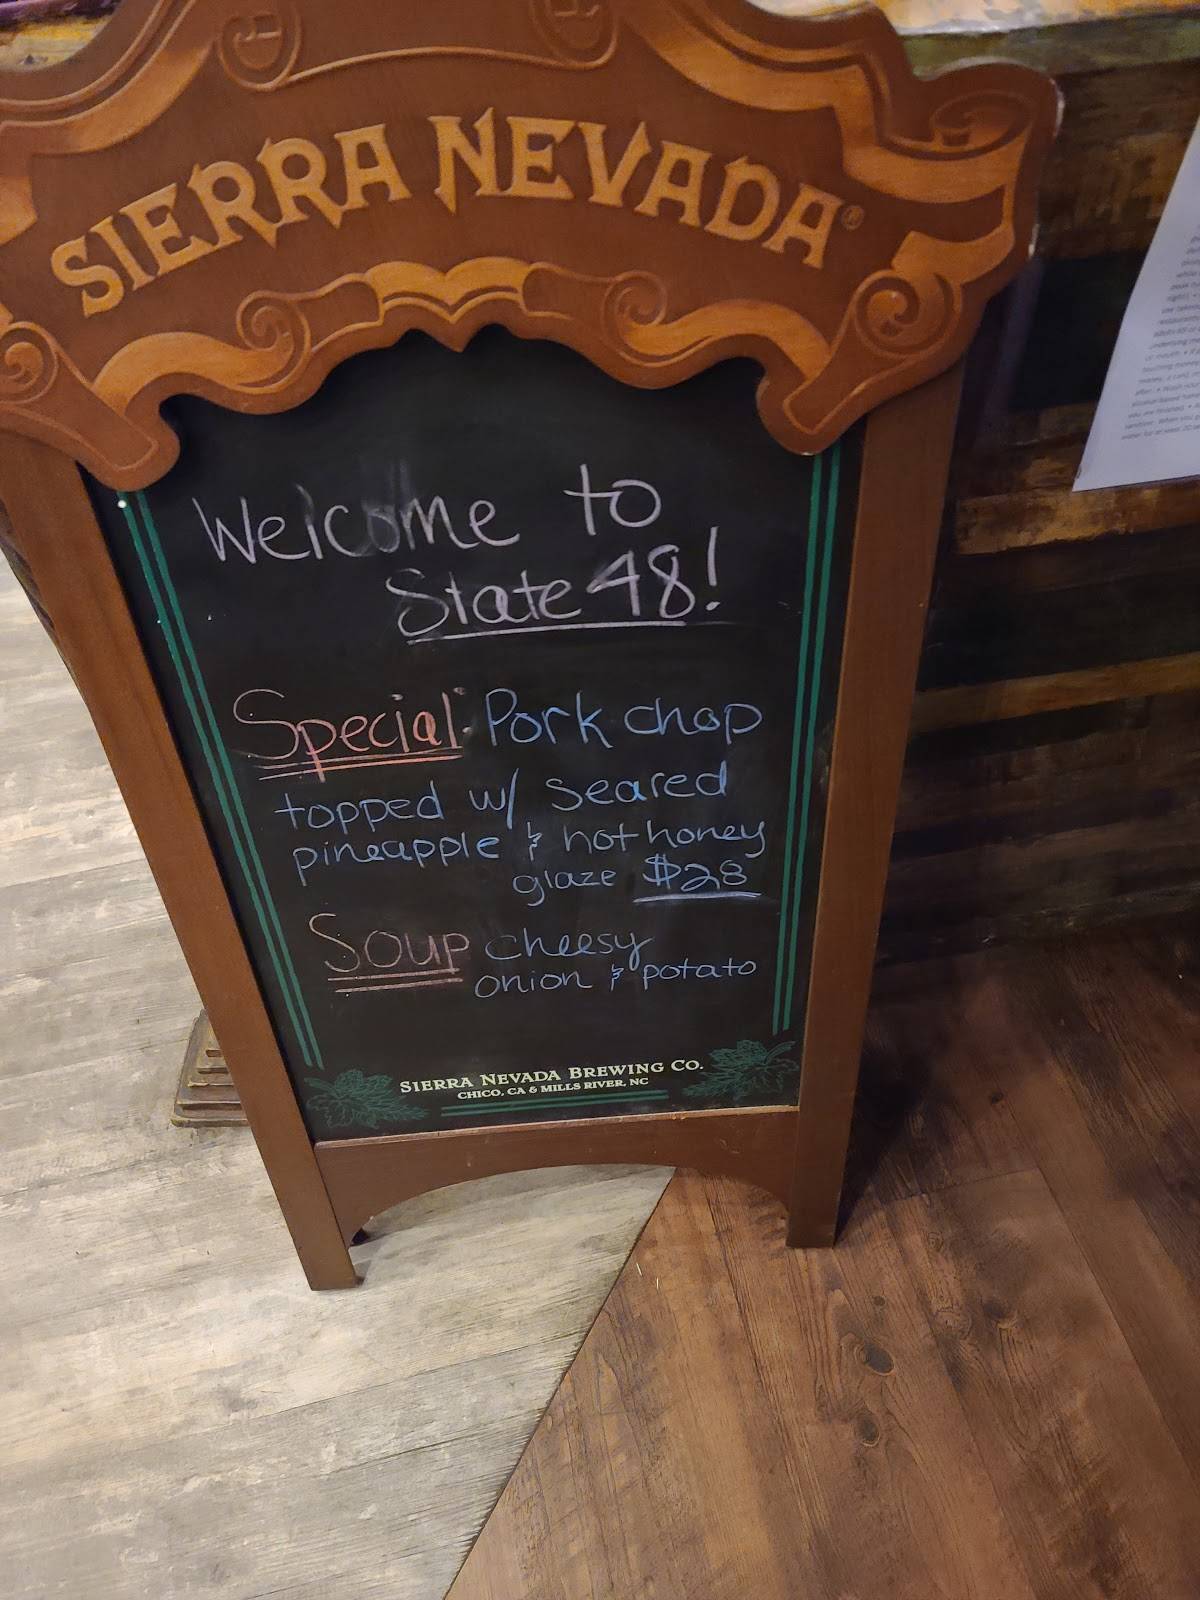 SIERRA NEVADA®
Welcome to
State 48!
Special: Pork chop
topped w/ seared
pineapple & hot honey
glaze $28
Soup cheesy
onion & potato
SIERRA NEVADA BREWING CO.
CHICO, CA & MILLS RIVER, NC